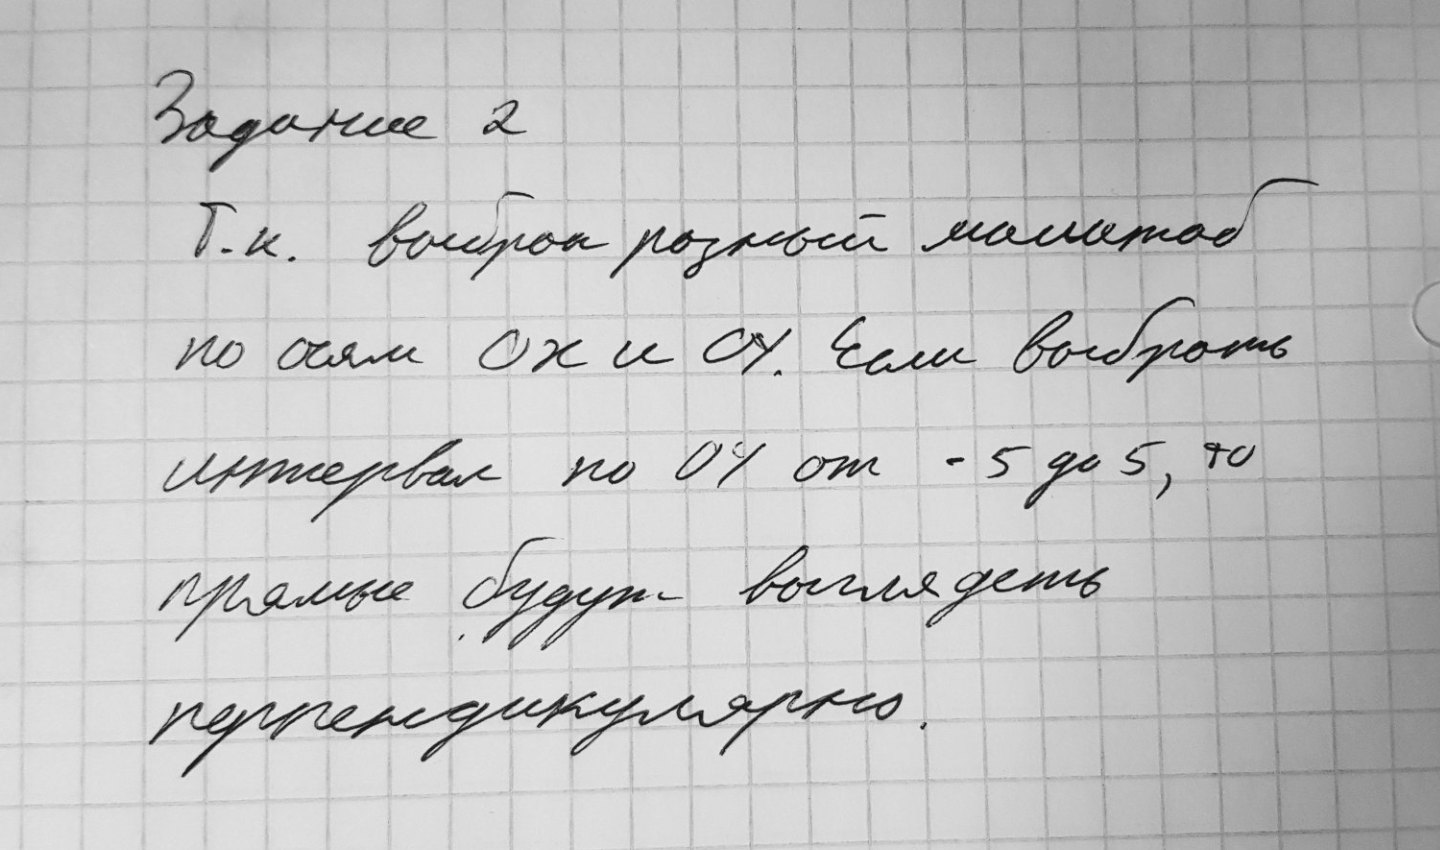 Задание 2
Т.к. выбран разный масштаб
по осям OX и OY. Если выбрать
интервал по OY от -5 до 5, то
прямые будут выглядеть
перпендикулярно.